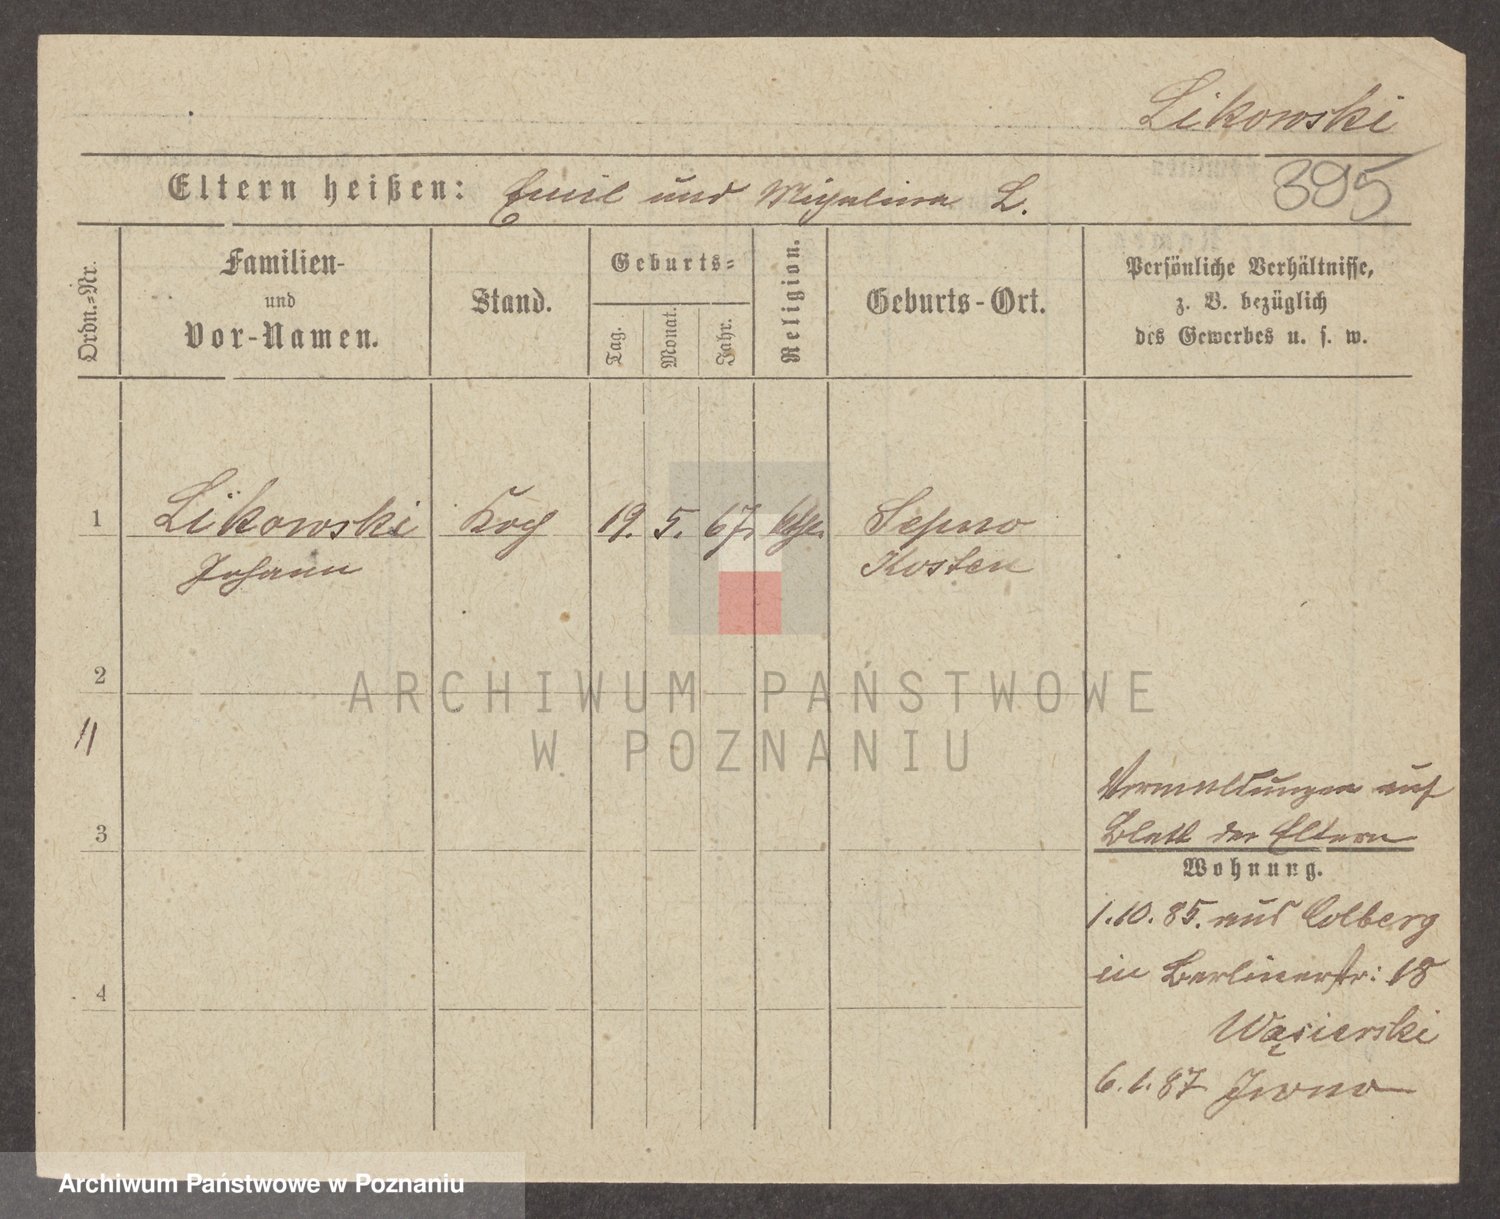 Likowski
395
Eltern heißen: Emil und Michalina L.
Ordn.=Nr.
Familien-
und
Vor-Namen.
Stand.
Geburts=
Tag.
Monat.
Jahr.
Religion.
Geburts-Ort.
Persönliche Verhältnisse,
z. B. bezüglich
des Gewerbes u. s. w.
1
Likowski
Johann
19. 5. 67. kth.
Sepno
Kosten
2
11
3
4
Vermeldungen auf
Blatt der Eltern
Wohnung.
1.10.85. aus Colberg
in Berlinerstr: 18
Wąsierski
6.1.87
ARCHIWUM PAŃSTWOWE
W POZNANIU
Archiwum Państwowe w Poznaniu